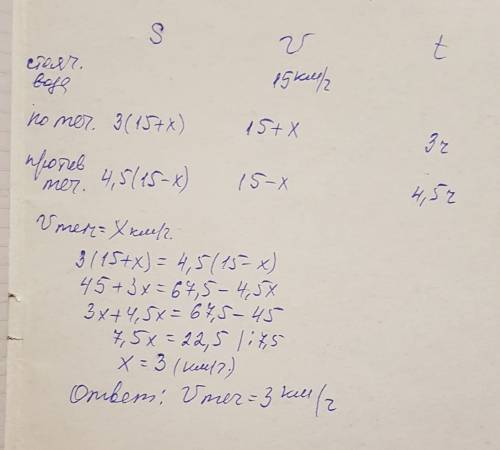 S V t
стояч.
вода 15 км/ч
по теч. 3(15+x) 15+x 3ч
против
теч. 4,5(15-x) 15-x 4,5ч
Vтеч = x км/ч.
3(15+x) = 4,5(15-x)
45+3x = 67,5-4,5x
3x+4,5x = 67,5-45
7,5x = 22,5 |:7,5
x = 3 (км/ч.)
Ответ: Vтеч = 3 км/ч